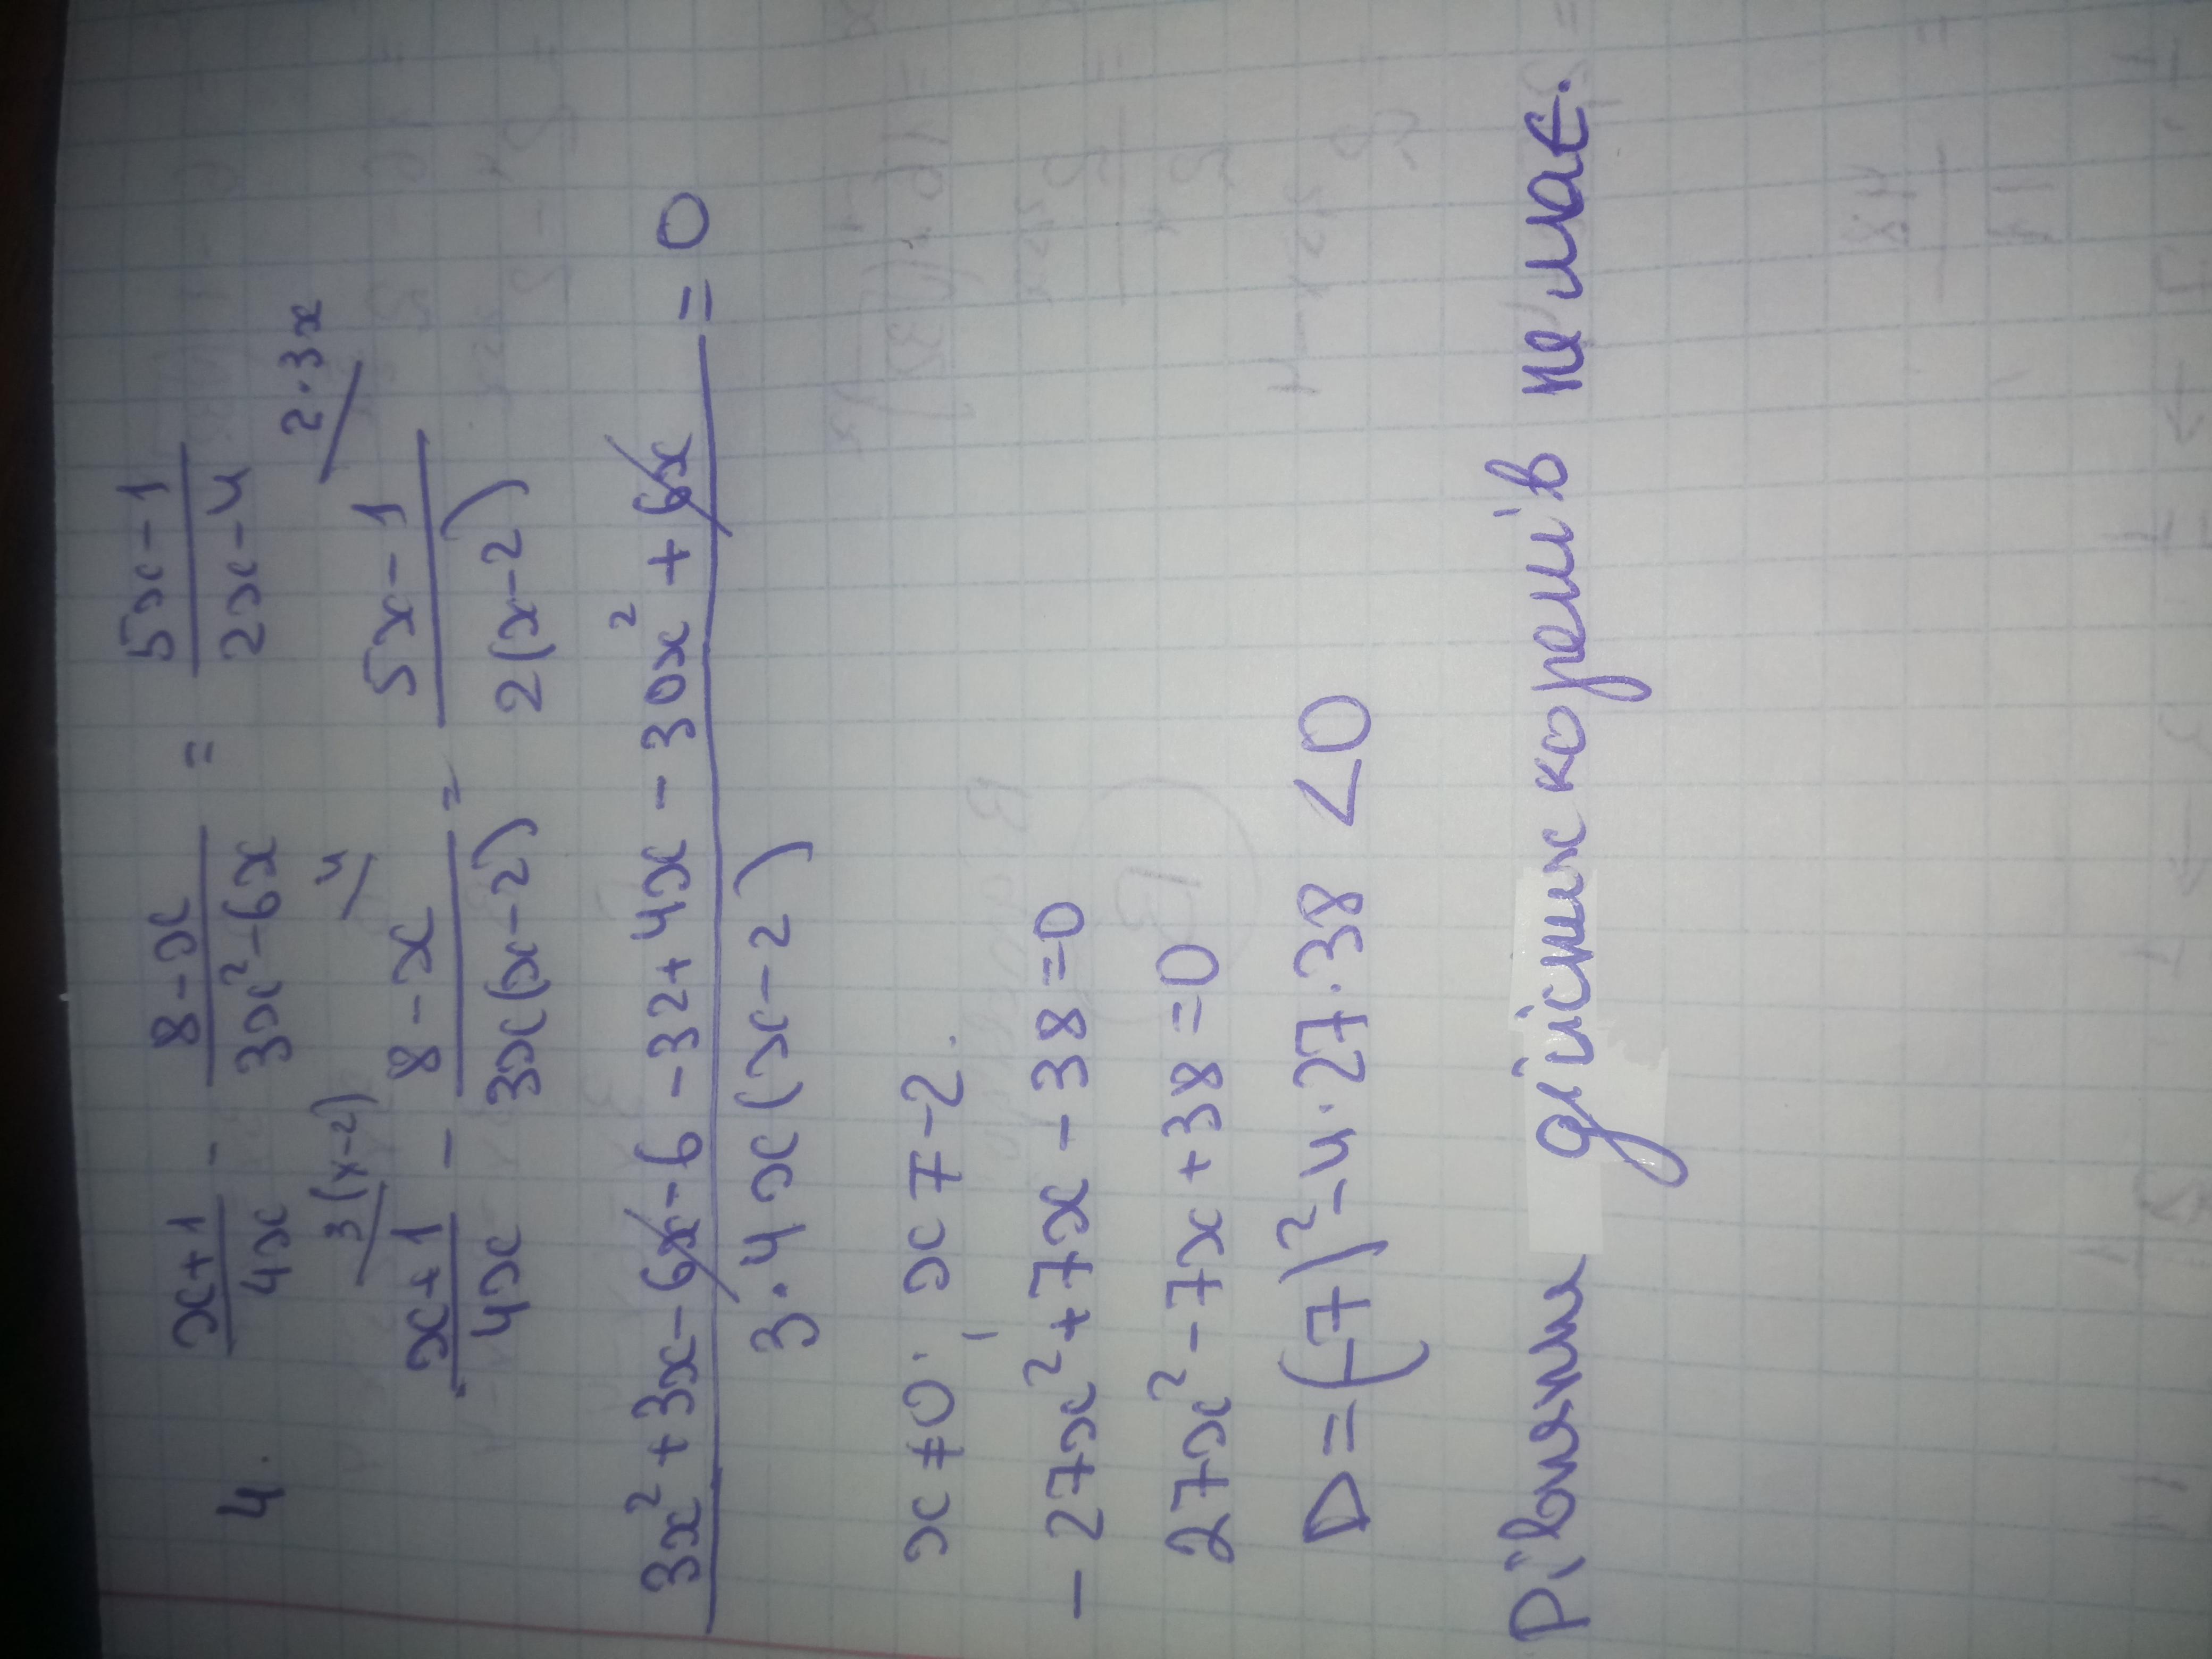 4. x+1/4x - 8-x/3x²-6x = 5x-1/2x-4
3(x-2) 4 2·3x
x+1/4x - 8-x/3x(x-2) = 5x-1/2(x-2)
3x²+3x-6x-6-32+4x-30x²+6x/3·4x(x-2) = 0
x≠0; x≠-2.
-27x²+7x-38=0
27x²-7x+38=0
D=(-7)²-4·27·38<0
Рівняння дійсних коренів не має.